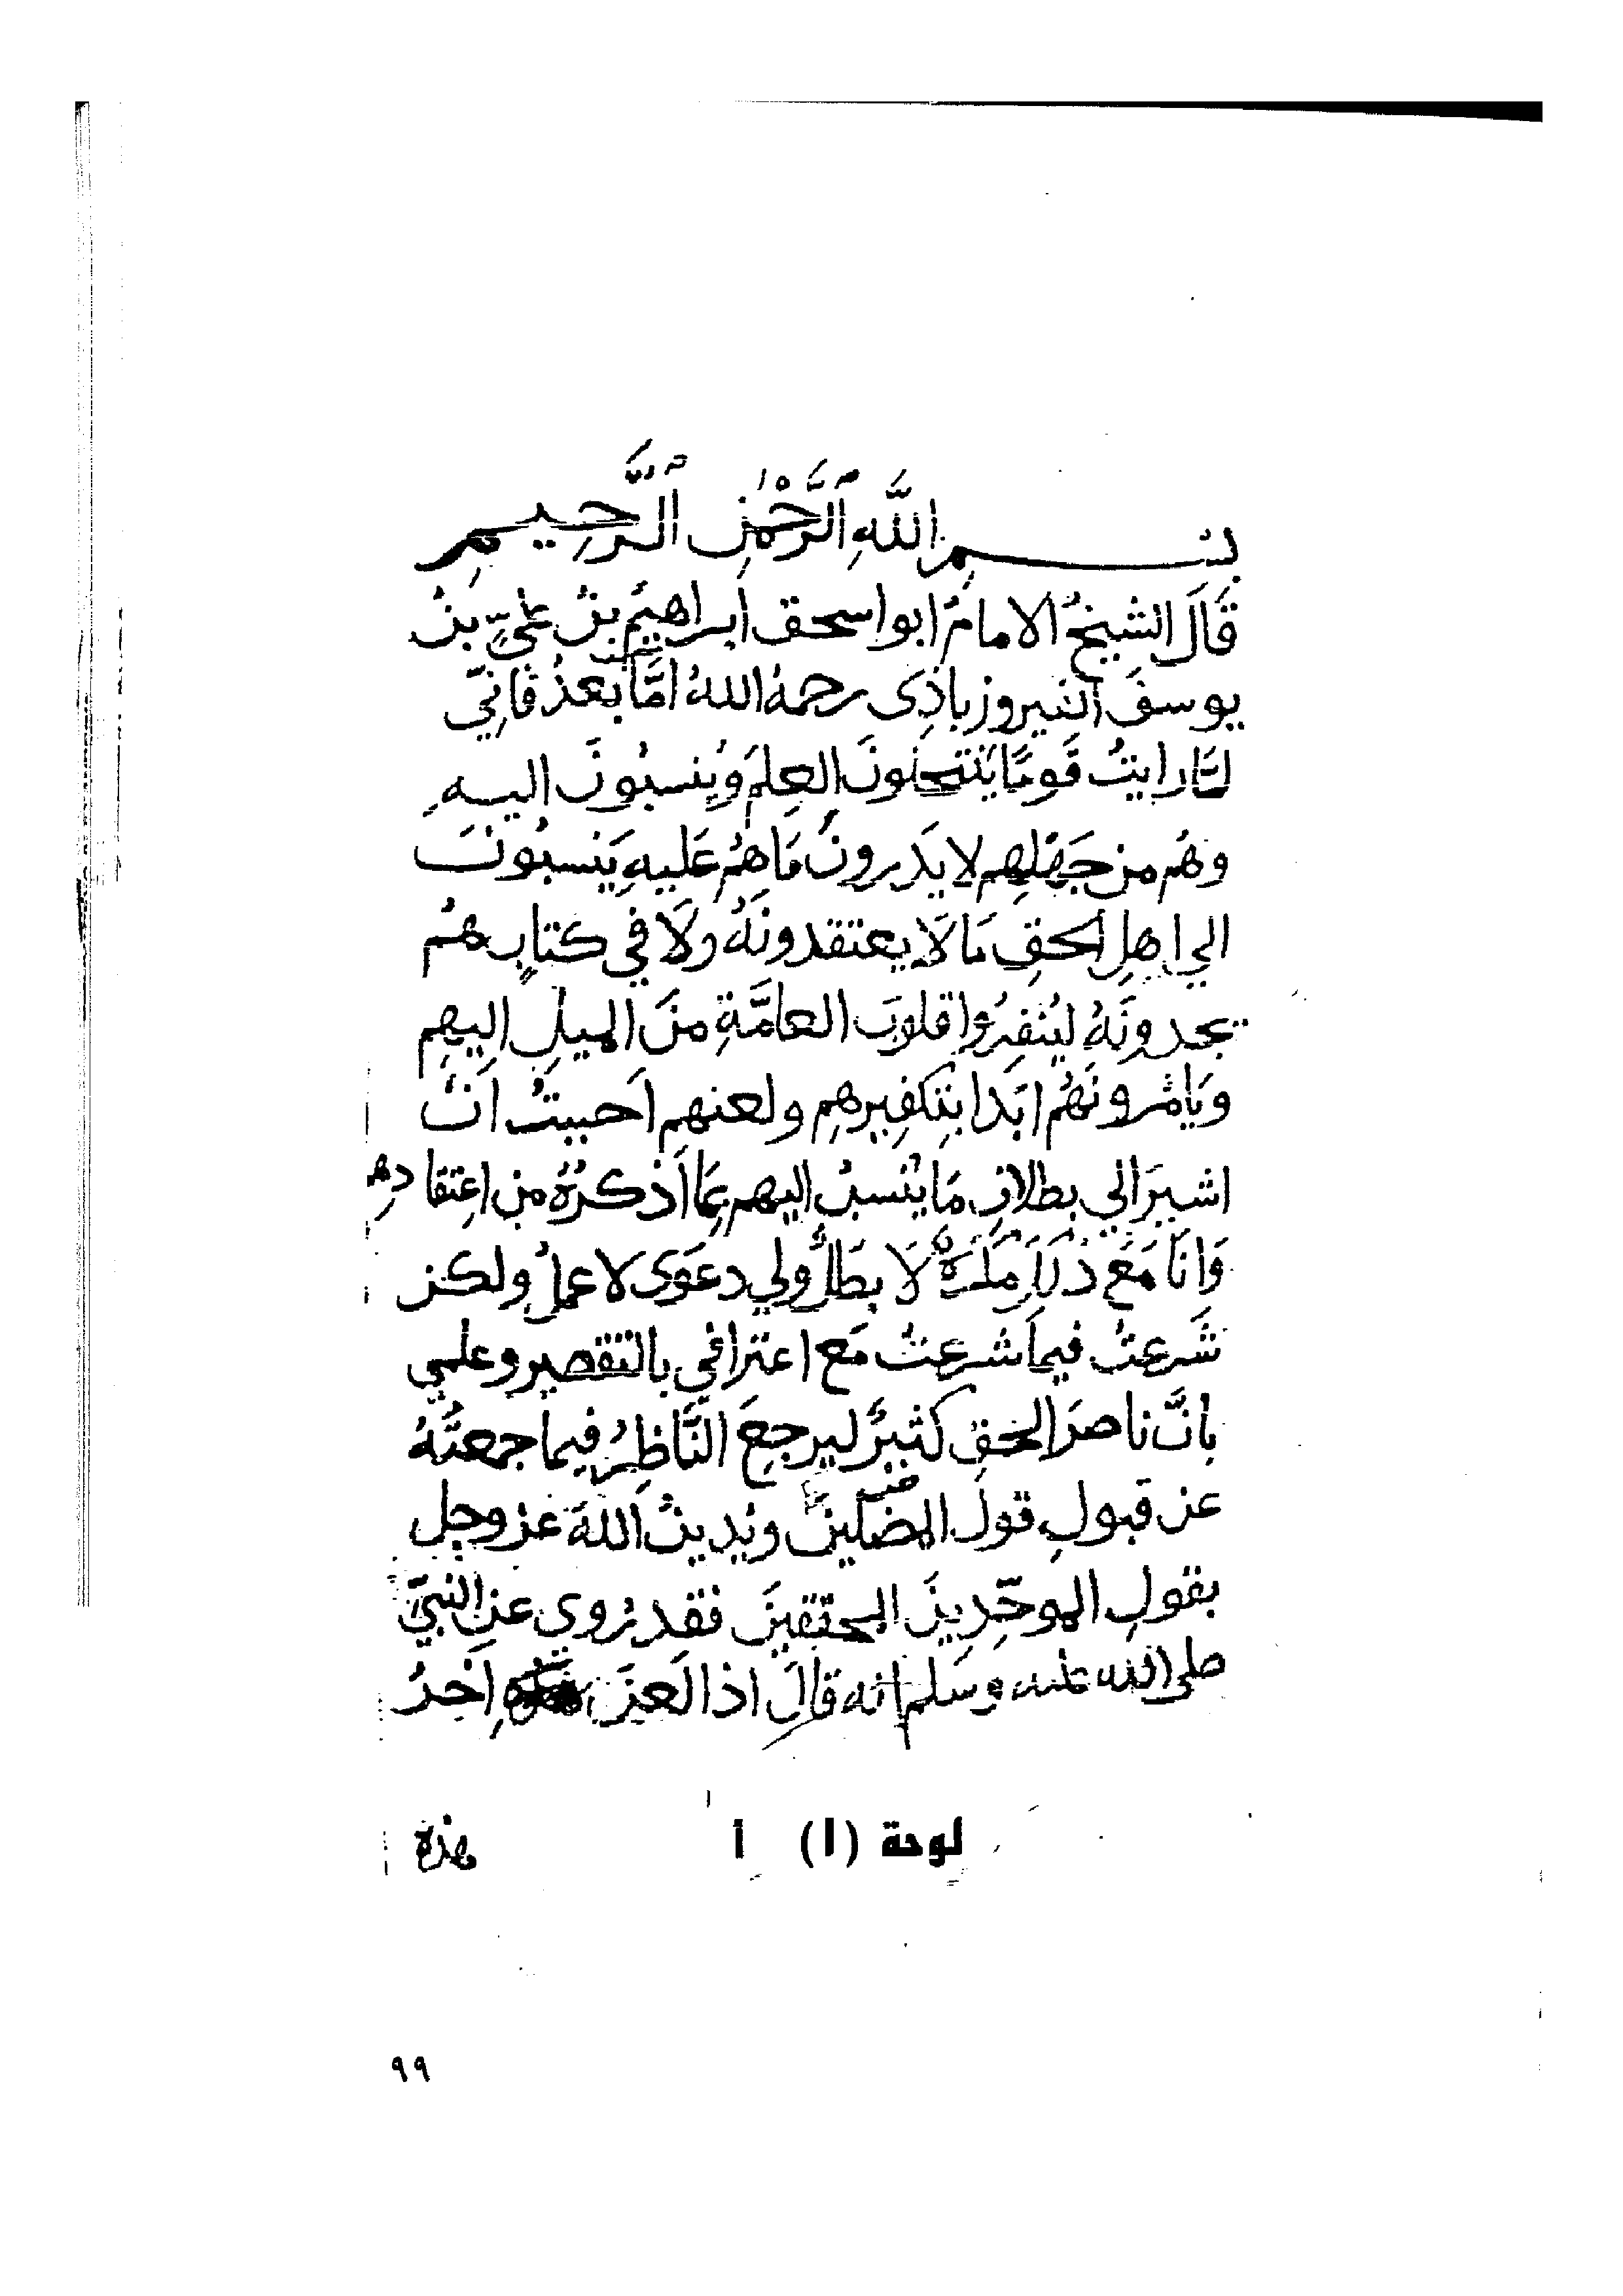 بسم اللَّهِ الرَّحْمٰنِ الرَّحِيمِ
قَالَ الشيخُ الامامُ ابواسحق ابراهيمُ بنُ عليِّ بنُ
يوسفَ الفيروزباذِى رحمهُ اللهُ امَّا بَعدُ فَانِّي
لمَّا رايتُ قَومًا يَنتحلونَ العِلمَ ويُنسبُونَ اليه
وهُم من جَهلِهِم لا يَدَرونَ مَا هُم عَليهِ يَنسبُونَ
الي اهلِ الحقِ مَا لَا يعتقدونَهُ ولَا في كتابٍ هُم
يجدونَهُ ليُنفِرُوا قلوبَ العامَّةِ منَ الميلِ اليهِم
وَيَامُرونَهُم ابَدا بتكفِيرهِم ولعنهم احببتُ انْ
اشيرَ الي بطلانِ مَا يُنسبُ اليهم بمَا اذكرُهُ من اعتقادهِم
وَانَا مَعَ ذلِكَ مُكرَهٌ لَا بَطَلٌ ولي دعوَى لا عملُ ولكن
شَرعتُ فيمَا شرعتُ مَع اعترافي بالتقصير وعلمي
بانَّ ناصرَ الحقِ كثيرٌ ليرجعَ النَّاظِرُ فيما جمعتُهُ
عن قبولِ قول المضلينَ ويَدينُ اللهَ عز وجل
بقولِ الموحِّدِينَ المحققينَ فقد رُوي عن النبيِّ
صلى الله عليه وسلم انه قالَ اذا لَعَنَ اخِرُ
هذه
لوحة (١) أ
٩٩